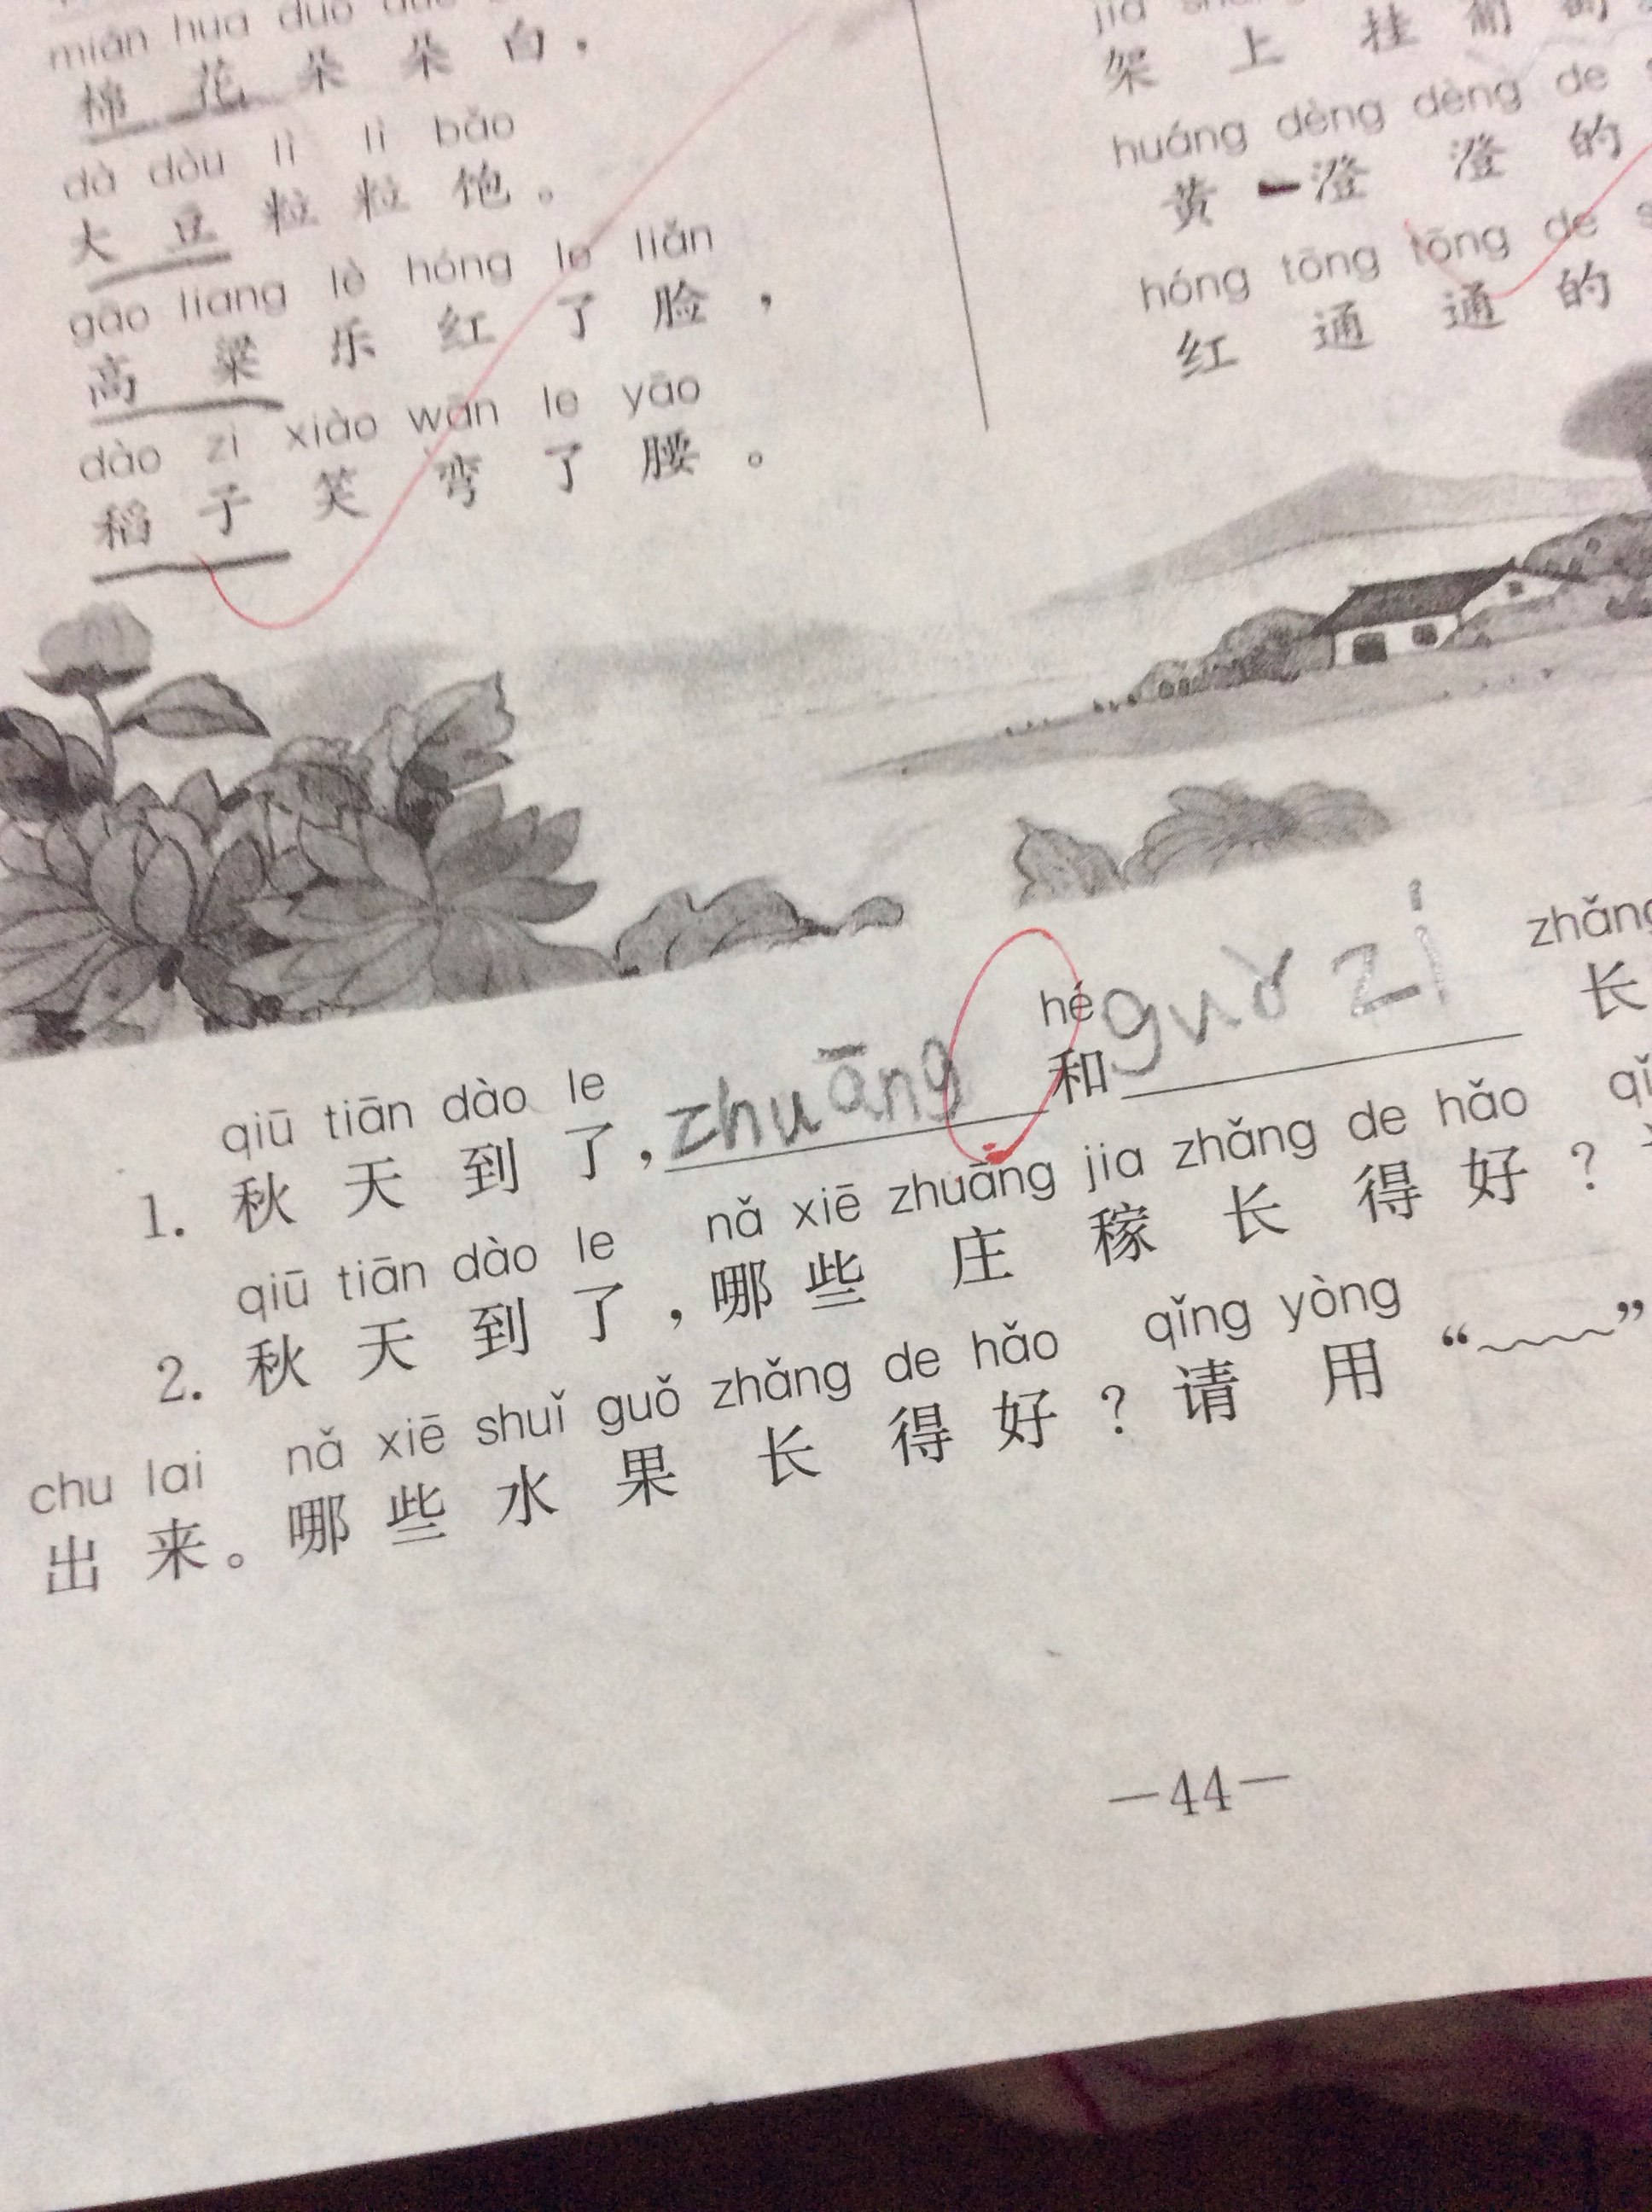 mián hua duǒ
棉 花 朵 朵 白，
dà dòu lì lì bǎo
大 豆 粒 粒 饱。
gāo liang lè hóng le liǎn
高 粱 乐 红 了 脸，
dào zi xiào wān le yāo
稻 子 笑 弯 了 腰。
架 上 挂 葡 萄
huáng dèng dèng de
黄 澄 澄 的
hóng tōng tōng de
红 通 通 的
qiū tiān dào le zhuāng hé guǒ zi zhǎng
1. 秋 天 到 了， 和 长
qiū tiān dào le nǎ xiē zhuāng jia zhǎng de hǎo
2. 秋 天 到 了，哪 些 庄 稼 长 得 好？
chu lai nǎ xiē shuǐ guǒ zhǎng de hǎo qǐng yòng
出 来。哪 些 水 果 长 得 好？请 用 “﹏﹏”
—44—